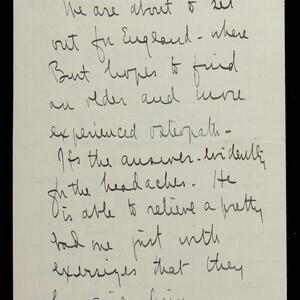 We are about to set
out for England - where
Burt hopes to find
an older and more
experienced osteopath -
It's the answer - evidently
for the headaches - He
is able to relieve a pretty
bad one just with
exersizes that they